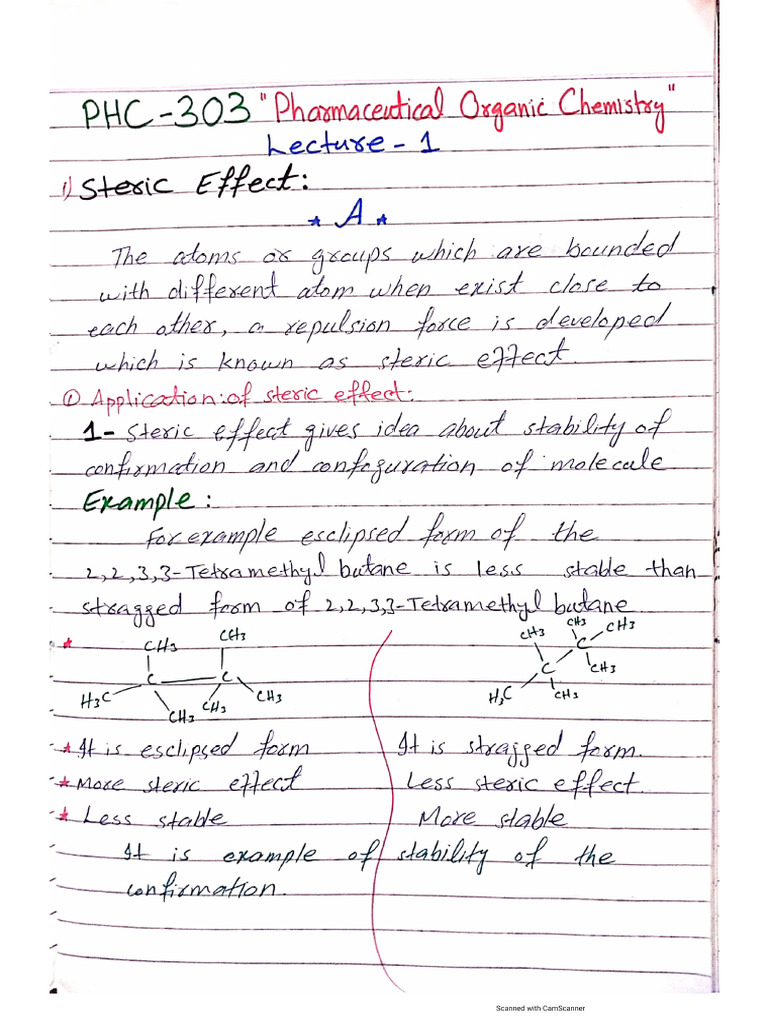 PHC-303 "Pharmaceutical Organic Chemistry"
Lecture - 1
1) Steric Effect:
* A *
The atoms or groups which are bounded
with different atom when exist close to
each other, a repulsion force is developed
which is known as steric effect.
① Application: of steric effect:
1- Steric effect gives idea about stability of
confirmation and confoguration of molecule
Example:
For example esclipsed form of the
2,2,3,3-Tetramethyl butane is less stable than
stragged form of 2,2,3,3-Tetramethyl butane
* CH3 CH3 CH3 CH3 CH3
C C C
H3C CH3 CH3 CH3 C CH3
H3C CH3
* It is esclipsed form It is stragged form.
* More steric effect Less steric effect.
* Less stable More stable
It is example of stability of the
confirmation.
Scanned with CamScanner